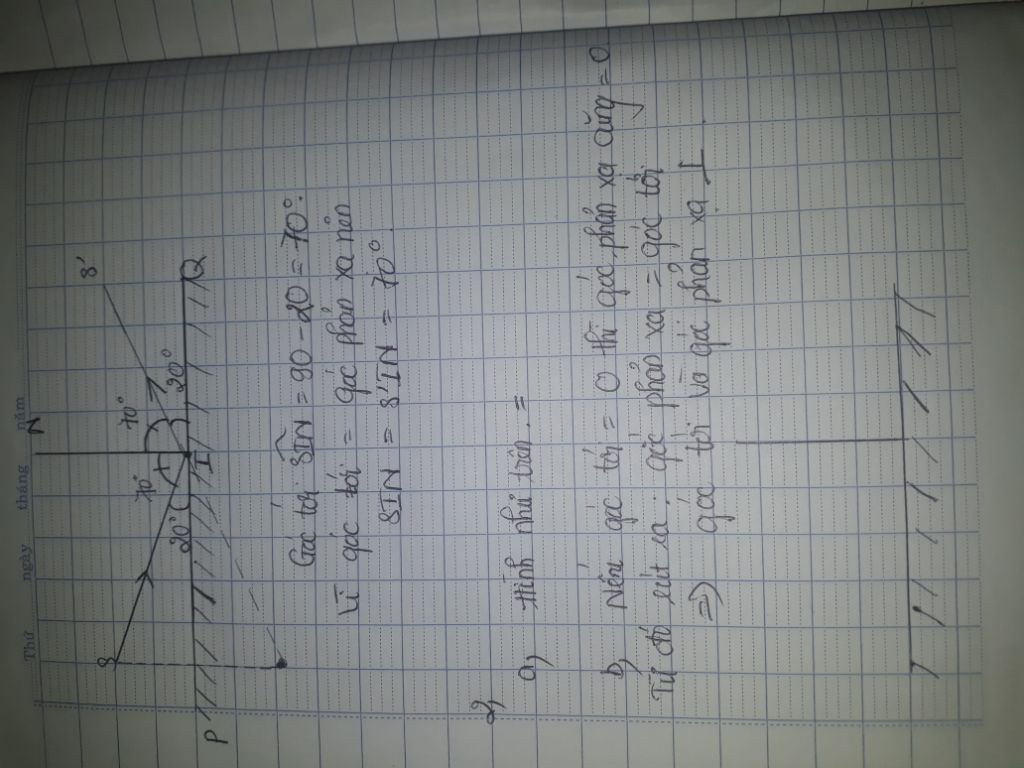 Thứ ngày tháng năm
N
S
S'
70° 70°
20° 20°
P I Q
Góc tới SIN = 90 - 20 = 70°.
Vì góc tới = góc phản xạ nên
SIN = S'IN = 70°.
2,
a, Hình như trên. =
b, Nếu góc tới = 0 thì góc phản xạ cũng = 0
Từ đó rút ra: góc phản xạ = góc tới
=) góc tới và góc phản xạ I